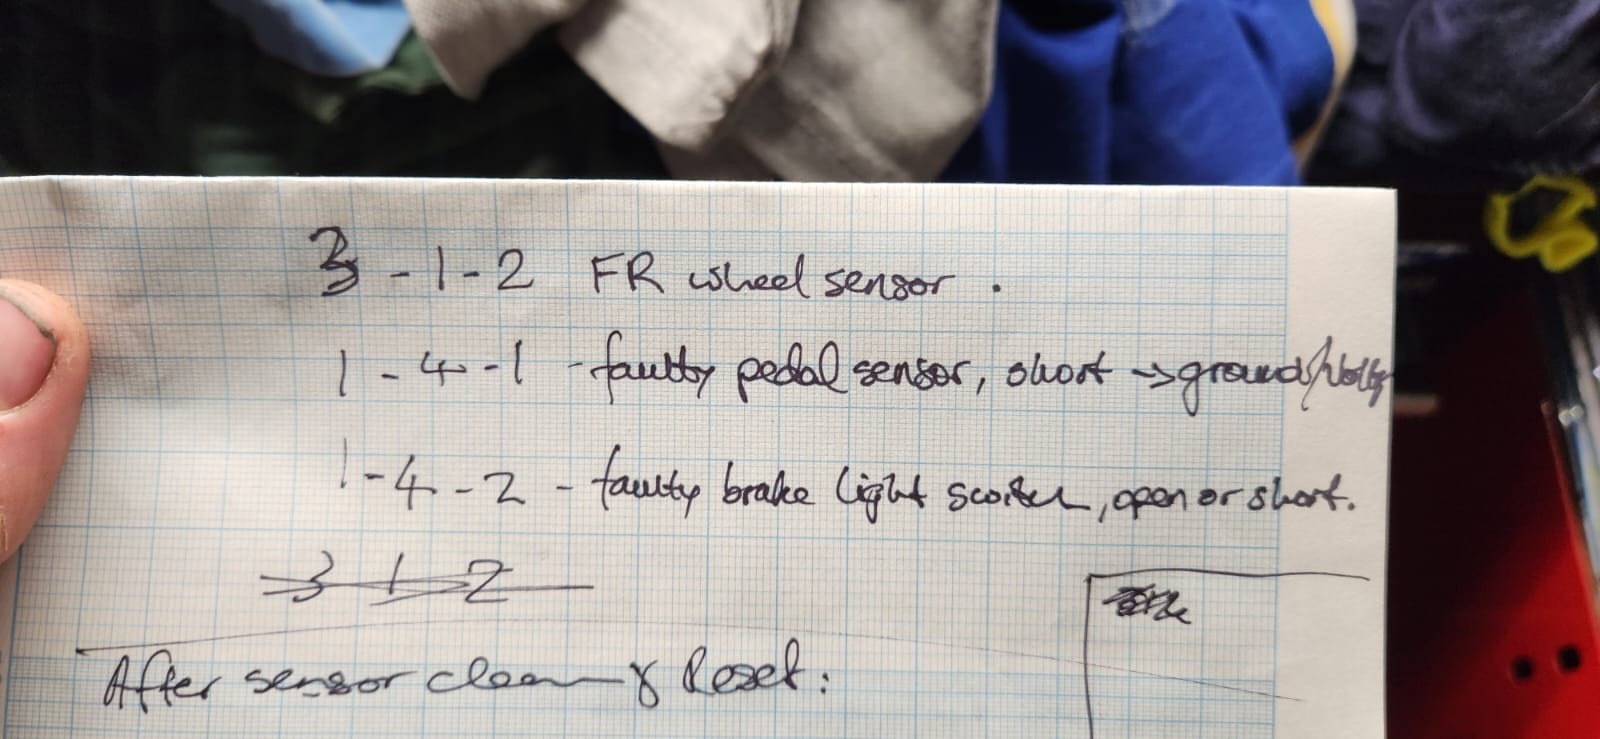 3 - 1 - 2 FR wheel sensor.
1 - 4 - 1 - faulty pedal sensor, short → ground/
1 - 4 - 2 - faulty brake light switch, open or short.
3 1 2
After sensor clean & Reset: